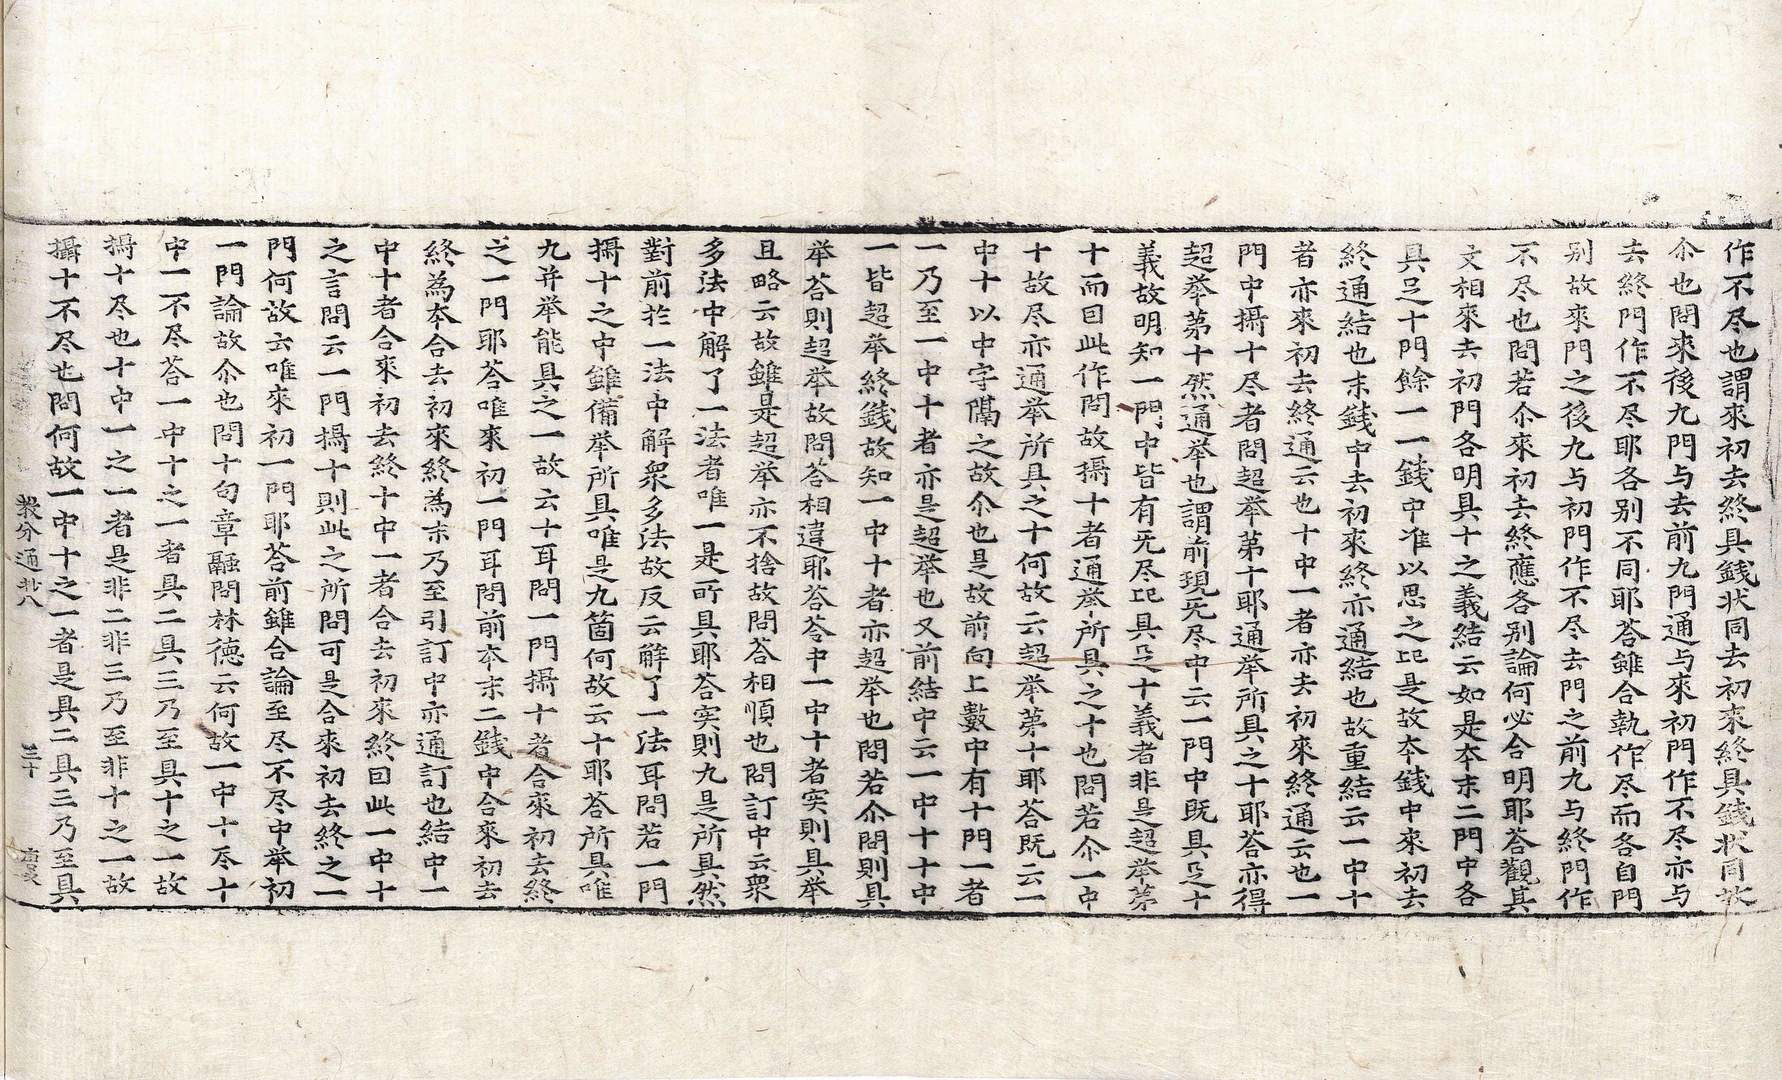 作不尽也謂來初去終具銭状同去初來終具銭状同故
尒也問來後九門与去前九門通与來初門作不尽亦与
去終門作不尽耶各别不同耶荅雖合執作尽而各自門
别故來門之後九与初門作不尽去門之前九与終門作
不尽也問若尒來初去終應各别論何必合明耶荅觀其
文相來去初門各明具十之義結云如是夲末二門中各
具足十門餘一一銭中准以思之记是故夲銭中來初去
終通結也末銭中去初來終亦通結也故重結云一中十
者亦來初去終通云也十中一者亦去初來終通云也一
門中攝十尽者問超举第十耶通举所具之十耶荅亦得
超举第十然通举也謂前現旡尽中云一門中既具足十
義故明知一門中皆有旡尽记具足十義者非是超举第
十而囙此作問故攝十者通举所具之十也問若尒一中
十故尽亦通举所具之十何故云超举第十耶荅既云一
中十以中字隔之故尒也是故前向上數中有十門一者
一乃至一中十者亦是超举也又前結中云一中十十中
一皆超举終銭故知一中十者亦超举也問若尒問則具
举荅則超举故問荅相違耶荅荅中一中十者实則具举
且略云故雖是超举亦不捨故問荅相順也問訂中云衆
多法中解了一法者唯一是所具耶荅实則九是所具然
對前於一法中解衆多法故反云解了一法耳問若一門
攝十之中雖備举所具唯是九箇何故云十耶荅所具唯
九并举能具之一故云十耳問一門攝十者合來初去終
之一門耶荅唯來初一門耳問前夲末二銭中合來初去
終為夲合去初來終為末乃至引訂中亦通訂也結中一
中十者合來初去終十中一者合去初來終囙此一中十
之言問云一門攝十則此之所問可是合來初去終之一
門何故云唯來初一門耶荅前雖合論至尽不尽中举初
一門論故尒也問十句章融問林德云何故一中十尽十
中一不尽荅一中十之一者具二具三乃至具十之一故
攝十尽也十中一之一者是非二非三乃至非十之一故
攝十不尽也問何故一中十之一者是具二具三乃至具
叢分通抄八　三十